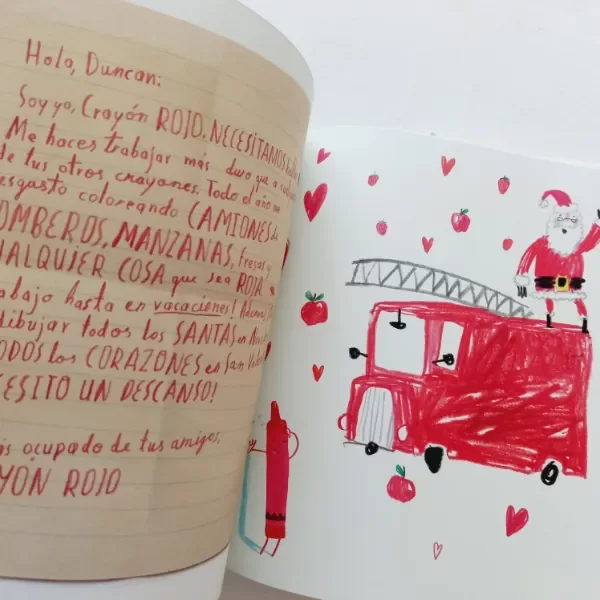 Hola, Duncan:
Soy yo, Crayón ROJO. NECESITAMOS
Me haces trabajar más duro que a
de tus otros crayones. Todo el año me
esgasto coloreando CAMIONES de
OMBEROS, MANZANAS, fresas y
UALQUIER COSA que sea ROJA.
abajo hasta en vacaciones! Además,
dibujar todos los SANTAS en
ODOS los CORAZONES en San
CESITO UN DESCANSO!
ás ocupado de tus amigos,
YÓN ROJO